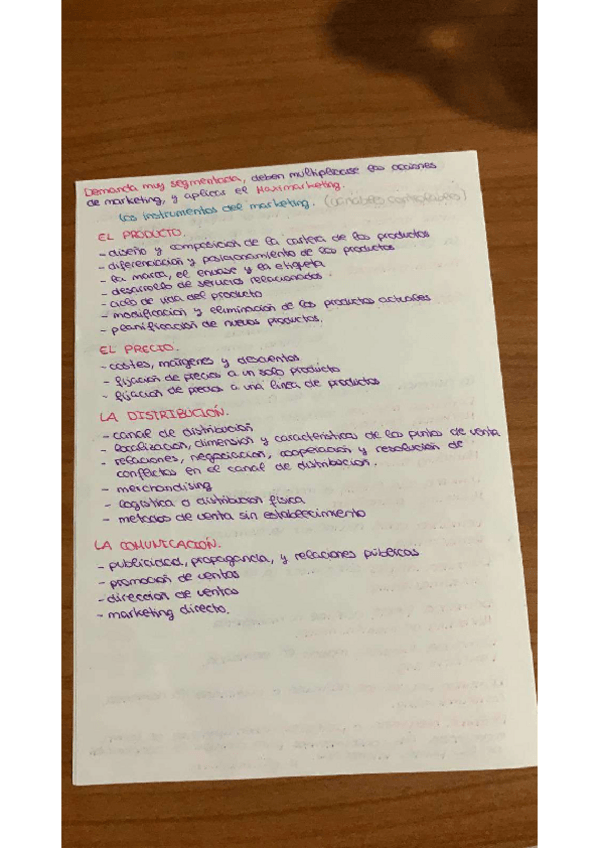 Demanda muy segmentada, deben multiplicarse las acciones
de marketing, y aplicar el Maximarketing.
Los instrumentos del marketing. (variables controlables)
EL PRODUCTO.
- diseño y composición de la cartera de los productos
- diferenciación y posicionamiento de los productos
- la marca, el envase y la etiqueta
- desarrollo de servicios relacionados.
- ciclo de vida del producto
- modificación y eliminación de los productos actuales
- planificación de nuevos productos.
EL PRECIO.
- costes, márgenes y descuentos
- fijación de precios a un solo producto
- fijación de precios a una línea de productos
LA DISTRIBUCIÓN.
- canal de distribución
- localización, dimensión y características de los puntos de venta
- relaciones, negociación, cooperación y resolución de
conflictos en el canal de distribución.
- merchandising
- logística o distribución física
- métodos de venta sin establecimiento
LA COMUNICACIÓN.
- publicidad, propaganda, y relaciones públicas
- promoción de ventas
- dirección de ventas
- marketing directo.